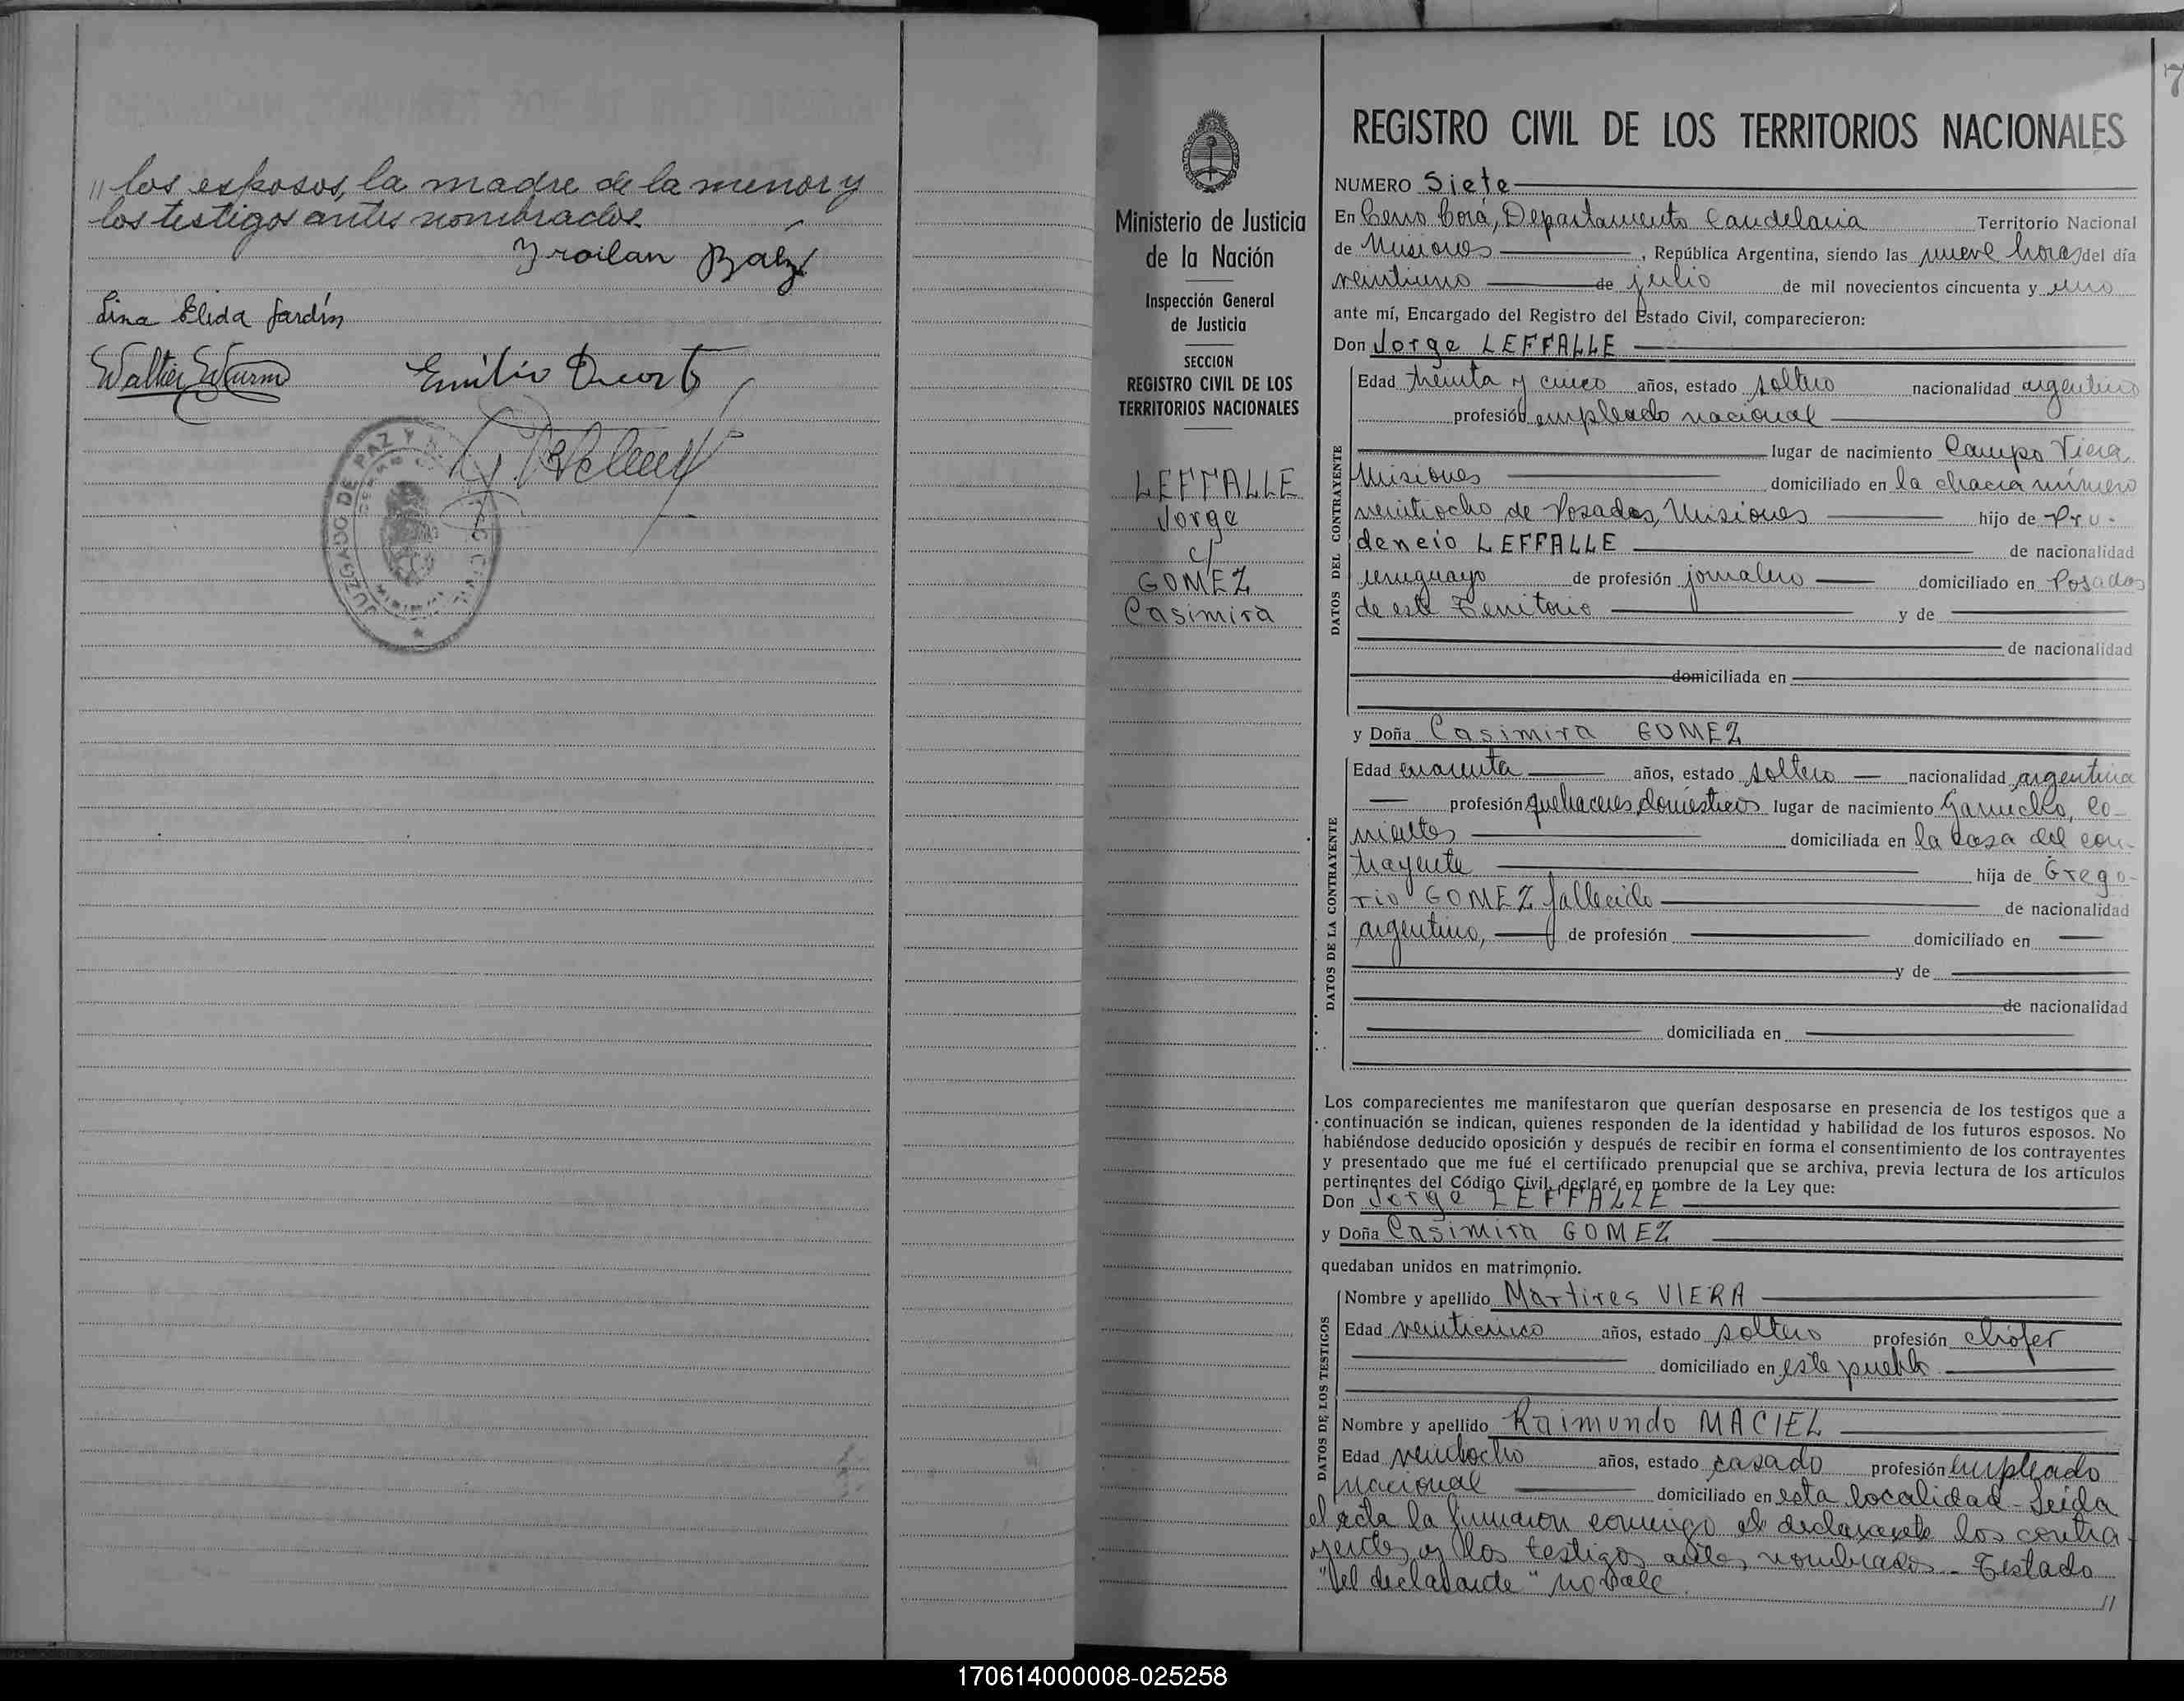 // los esposos, la madre de la menor y
los testigos antes nombrados.
Troilan Baez
Lina Elida Jardín
Walter Sturm
Emilio
JUZGADO DE PAZ Y
7
Ministerio de Justicia
de la Nación
Inspección General
de Justicia
SECCION
REGISTRO CIVIL DE LOS
TERRITORIOS NACIONALES
LEFFALLE
Jorge
c/
GOMEZ
Casimira
REGISTRO CIVIL DE LOS TERRITORIOS NACIONALES
NUMERO Siete
En Cerro Corá, Departamento Candelaria Territorio Nacional
de Misiones, República Argentina, siendo las nueve horas del día
veintiuno de julio de mil novecientos cincuenta y uno
ante mí, Encargado del Registro del Estado Civil, comparecieron:
Don Jorge LEFFALLE
DATOS DEL CONTRAYENTE
Edad treinta y cinco años, estado soltero nacionalidad argentino
profesión empleado nacional
lugar de nacimiento Campo Viera
Misiones domiciliado en la chacra número
veintiocho de Posadas, Misiones hijo de Pru-
dencio LEFFALLE de nacionalidad
uruguayo de profesión jornalero domiciliado en Posadas
de este Territorio y de
de nacionalidad
domiciliada en
y Doña Casimira GOMEZ
DATOS DE LA CONTRAYENTE
Edad cuarenta años, estado soltera nacionalidad argentina
profesión quehaceres domésticos lugar de nacimiento Garruchos, Co-
rrientes domiciliada en la casa del con-
trayente hija de Grego-
rio GOMEZ fallecido de nacionalidad
argentino, de profesión domiciliado en
y de
de nacionalidad
domiciliada en
Los comparecientes me manifestaron que querían desposarse en presencia de los testigos que a
continuación se indican, quienes responden de la identidad y habilidad de los futuros esposos. No
habiéndose deducido oposición y después de recibir en forma el consentimiento de los contrayentes
y presentado que me fué el certificado prenupcial que se archiva, previa lectura de los artículos
pertinentes del Código Civil, declaré en nombre de la Ley que:
Don Jorge LEFFALLE
y Doña Casimira GOMEZ
quedaban unidos en matrimonio.
DATOS DE LOS TESTIGOS
Nombre y apellido Martires VIERA
Edad veinticinco años, estado soltero profesión chófer
domiciliado en este pueblo
Nombre y apellido Raimundo MACIEL
Edad veintiocho años, estado casado profesión empleado
nacional domiciliado en esta localidad - Leída
el acta la firmaron conmigo el declarante los contra-
yentes y los testigos antes nombrados - Testado
"el declarante" no vale.
//
170614000008-025258